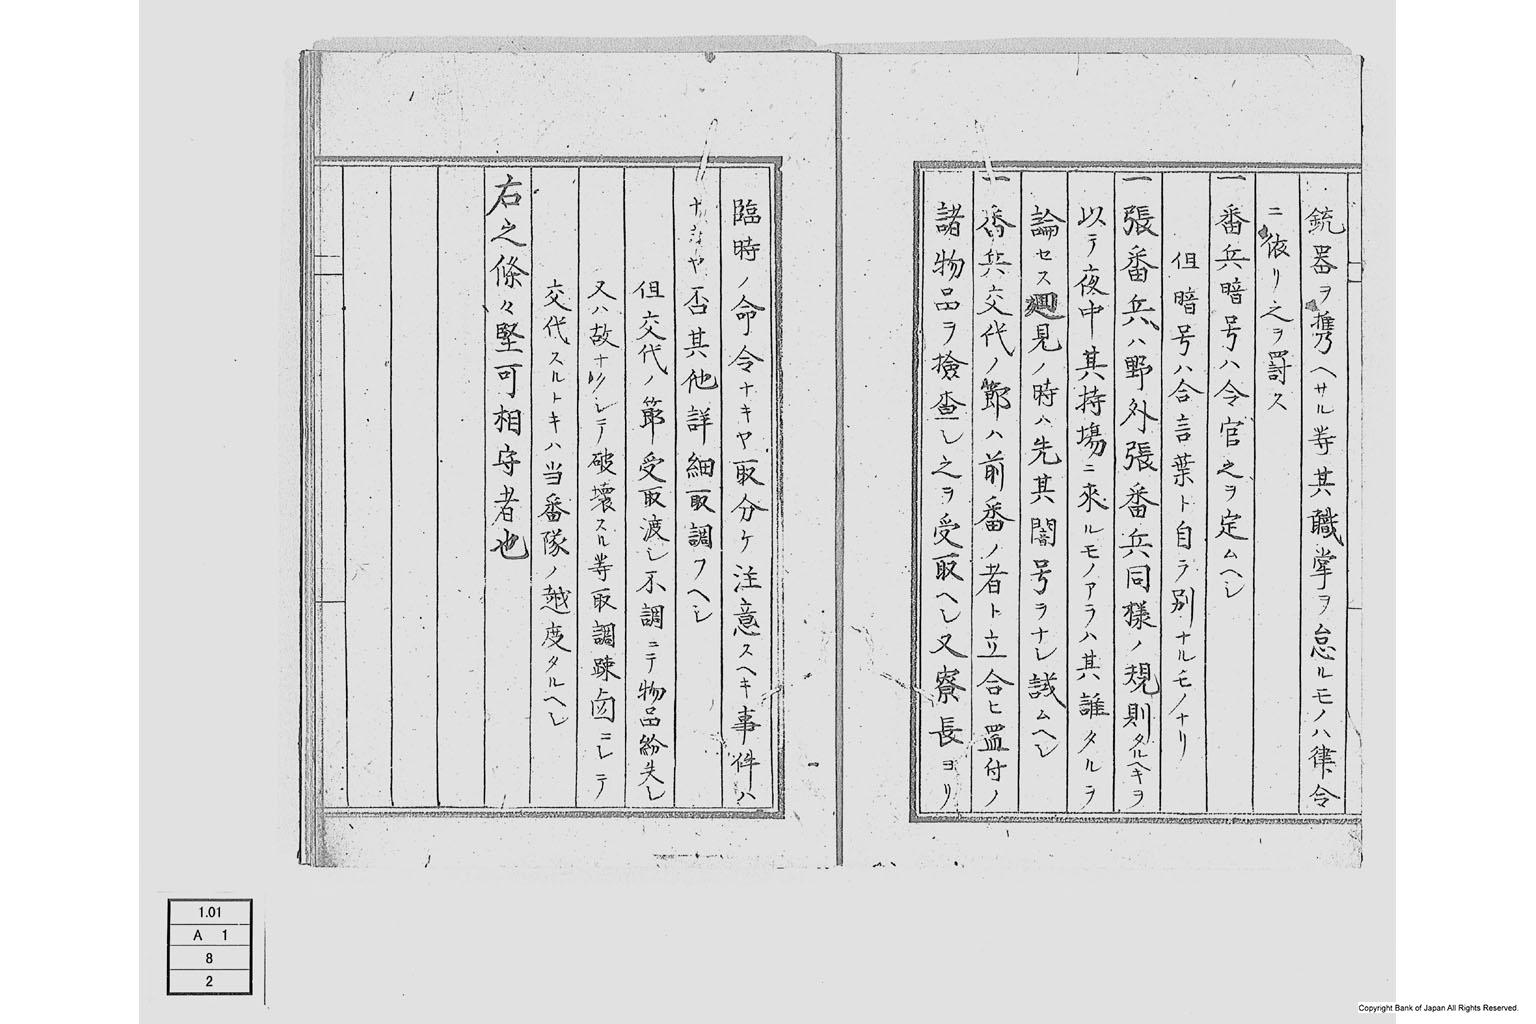 銃器ヲ携ヘサル等其職掌ヲ怠ルモノハ律令
ニ依リ之ヲ罰ス
一番兵暗号ハ令官之ヲ定ムヘシ
但暗号ハ合言葉ト自ラ別ナルモノナリ
一張番兵ハ野外張番兵同様ノ規則タルヘキヲ
以テ夜中其持場ニ来ルモノアラハ其誰タルヲ
論セス廻見ノ時ハ先其闇号ヲナシ試ムヘシ
一番兵交代ノ節ハ前番ノ者ト立合ヒ置付ノ
諸物品ヲ撿査シ之ヲ受取ヘシ又寮長ヨリ
臨時ノ命令ナキヤ取分ケ注意スヘキ事件ハ
ナキヤ否其他詳細取調フヘシ
但交代ノ節受取渡シ不調ニテ物品紛失シ
又ハ故ナクシテ破壊スル等取調踈卤ニシテ
交代スルトキハ当番隊ノ越度タルヘシ
右之條々堅可相守者也
1.01
A 1
8
2
Copyright Bank of Japan All Rights Reserved.